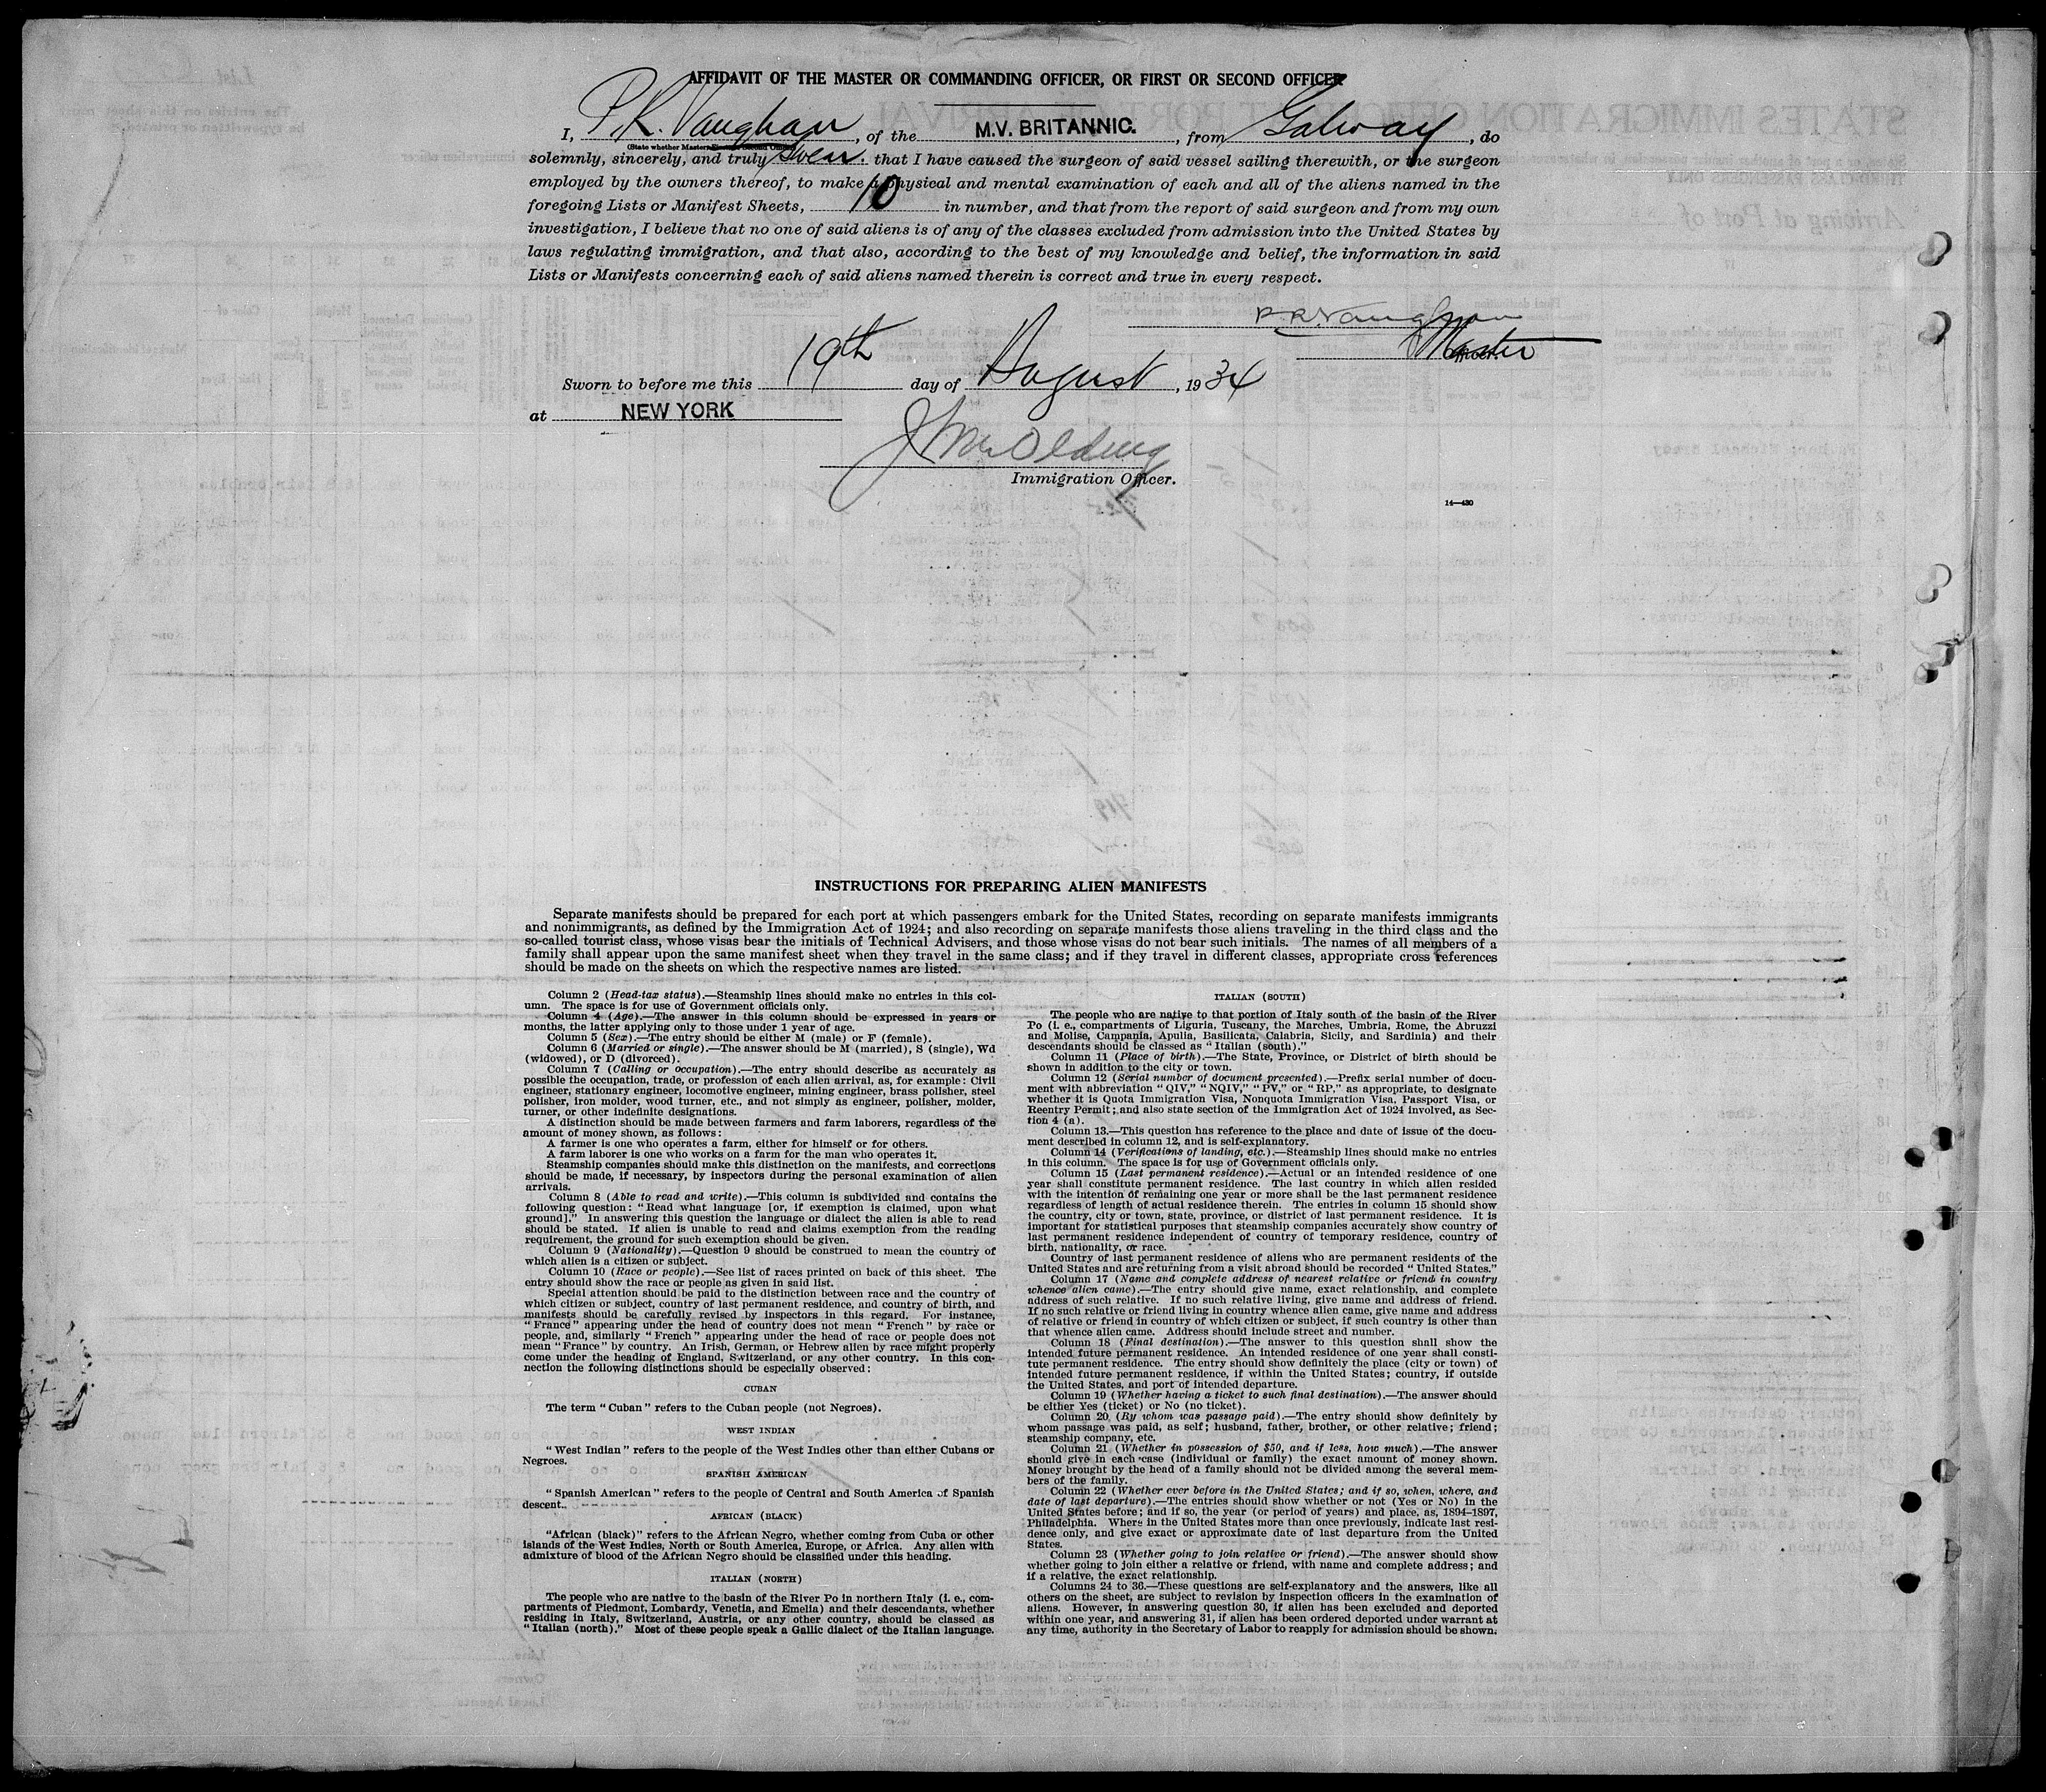 AFFIDAVIT OF THE MASTER OR COMMANDING OFFICER, OR FIRST OR SECOND OFFICER
I, P.R. Vaughan, of the M.V. BRITANNIC., from Galway, do
(State whether Master, First or Second Officer)
solemnly, sincerely, and truly swear that I have caused the surgeon of said vessel sailing therewith, or the surgeon
employed by the owners thereof, to make a physical and mental examination of each and all of the aliens named in the
foregoing Lists or Manifest Sheets, 10 in number, and that from the report of said surgeon and from my own
investigation, I believe that no one of said aliens is of any of the classes excluded from admission into the United States by
laws regulating immigration, and that also, according to the best of my knowledge and belief, the information in said
Lists or Manifests concerning each of said aliens named therein is correct and true in every respect.
P.R. Vaughan
Master
Officer.
Sworn to before me this 19th day of August, 1934
at NEW YORK
Immigration Officer.
14—430
INSTRUCTIONS FOR PREPARING ALIEN MANIFESTS
Separate manifests should be prepared for each port at which passengers embark for the United States, recording on separate manifests immigrants
and nonimmigrants, as defined by the Immigration Act of 1924; and also recording on separate manifests those aliens traveling in the third class and the
so-called tourist class, whose visas bear the initials of Technical Advisers, and those whose visas do not bear such initials. The names of all members of a
family shall appear upon the same manifest sheet when they travel in the same class; and if they travel in different classes, appropriate cross references
should be made on the sheets on which the respective names are listed.
Column 2 (Head-tax status).—Steamship lines should make no entries in this col-
umn. The space is for use of Government officials only.
Column 4 (Age).—The answer in this column should be expressed in years or
months, the latter applying only to those under 1 year of age.
Column 5 (Sex).—The entry should be either M (male) or F (female).
Column 6 (Married or single).—The answer should be M (married), S (single), Wd
(widowed), or D (divorced).
Column 7 (Calling or occupation).—The entry should describe as accurately as
possible the occupation, trade, or profession of each alien arrival, as, for example: Civil
engineer, stationary engineer, locomotive engineer, mining engineer, brass polisher, steel
polisher, iron molder, wood turner, etc., and not simply as engineer, polisher, molder,
turner, or other indefinite designations.
A distinction should be made between farmers and farm laborers, regardless of the
amount of money shown, as follows:
A farmer is one who operates a farm, either for himself or for others.
A farm laborer is one who works on a farm for the man who operates it.
Steamship companies should make this distinction on the manifests, and corrections
should be made, if necessary, by inspectors during the personal examination of alien
arrivals.
Column 8 (Able to read and write).—This column is subdivided and contains the
following question: "Read what language [or, if exemption is claimed, upon what
ground]." In answering this question the language or dialect the alien is able to read
should be stated. If alien is unable to read and claims exemption from the reading
requirement, the ground for such exemption should be given.
Column 9 (Nationality).—Question 9 should be construed to mean the country of
which alien is a citizen or subject.
Column 10 (Race or people).—See list of races printed on back of this sheet. The
entry should show the race or people as given in said list.
Special attention should be paid to the distinction between race and the country of
which citizen or subject, country of last permanent residence, and country of birth, and
manifests should be carefully revised by inspectors in this regard. For instance,
"France" appearing under the head of country does not mean "French" by race or
people, and, similarly "French" appearing under the head of race or people does not
mean "France" by country. An Irish, German, or Hebrew alien by race might properly
come under the heading of England, Switzerland, or any other country. In this con-
nection the following distinctions should be especially observed:
CUBAN
The term "Cuban" refers to the Cuban people (not Negroes).
WEST INDIAN
"West Indian" refers to the people of the West Indies other than either Cubans or
Negroes.
SPANISH AMERICAN
"Spanish American" refers to the people of Central and South America of Spanish
descent.
AFRICAN (BLACK)
"African (black)" refers to the African Negro, whether coming from Cuba or other
islands of the West Indies, North or South America, Europe, or Africa. Any alien with
admixture of blood of the African Negro should be classified under this heading.
ITALIAN (NORTH)
The people who are native to the basin of the River Po in northern Italy (i. e., com-
partments of Piedmont, Lombardy, Venetia, and Emelia) and their descendants, whether
residing in Italy, Switzerland, Austria, or any other country, should be classed as
"Italian (north)." Most of these people speak a Gallic dialect of the Italian language.
ITALIAN (SOUTH)
The people who are native to that portion of Italy south of the basin of the River
Po (i. e., compartments of Liguria, Tuscany, the Marches, Umbria, Rome, the Abruzzi
and Molise, Campania, Apulia, Basilicata, Calabria, Sicily, and Sardinia) and their
descendants should be classed as "Italian (south)."
Column 11 (Place of birth).—The State, Province, or District of birth should be
shown in addition to the city or town.
Column 12 (Serial number of document presented).—Prefix serial number of docu-
ment with abbreviation "QIV," "NQIV," "PV," or "RP," as appropriate, to designate
whether it is Quota Immigration Visa, Nonquota Immigration Visa, Passport Visa, or
Reentry Permit; and also state section of the Immigration Act of 1924 involved, as Sec-
tion 4 (a).
Column 13.—This question has reference to the place and date of issue of the docu-
ment described in column 12, and is self-explanatory.
Column 14 (Verifications of landing, etc.).—Steamship lines should make no entries
in this column. The space is for use of Government officials only.
Column 15 (Last permanent residence).—Actual or an intended residence of one
year shall constitute permanent residence. The last country in which alien resided
with the intention of remaining one year or more shall be the last permanent residence
regardless of length of actual residence therein. The entries in column 15 should show
the country, city or town, state, province, or district of last permanent residence. It is
important for statistical purposes that steamship companies accurately show country of
last permanent residence independent of country of temporary residence, country of
birth, nationality, or race.
Country of last permanent residence of aliens who are permanent residents of the
United States and are returning from a visit abroad should be recorded "United States."
Column 17 (Name and complete address of nearest relative or friend in country
whence alien came).—The entry should give name, exact relationship, and complete
address of such relative. If no such relative living, give name and address of friend.
If no such relative or friend living in country whence alien came, give name and address
of relative or friend in country of which citizen or subject, if such country is other than
that whence alien came. Address should include street and number.
Column 18 (Final destination).—The answer to this question shall show the
intended future permanent residence. An intended residence of one year shall consti-
tute permanent residence. The entry should show definitely the place (city or town) of
intended future permanent residence, if within the United States; country, if outside
the United States, and port of intended departure.
Column 19 (Whether having a ticket to such final destination).—The answer should
be either Yes (ticket) or No (no ticket).
Column 20 (By whom was passage paid).—The entry should show definitely by
whom passage was paid, as self; husband, father, brother, or other relative; friend;
steamship company, etc.
Column 21 (Whether in possession of $50, and if less, how much).—The answer
should give in each case (individual or family) the exact amount of money shown.
Money brought by the head of a family should not be divided among the several mem-
bers of the family.
Column 22 (Whether ever before in the United States; and if so, when, where, and
date of last departure).—The entries should show whether or not (Yes or No) in the
United States before; and if so, the year (or period of years) and place, as, 1894–1897,
Philadelphia. Where in the United States more than once previously, indicate last resi-
dence only, and give exact or approximate date of last departure from the United
States.
Column 23 (Whether going to join relative or friend).—The answer should show
whether going to join either a relative or friend, with name and complete address; and
if a relative, the exact relationship.
Columns 24 to 36.—These questions are self-explanatory and the answers, like all
others on the sheet, are subject to revision by inspection officers in the examination of
aliens. However, in answering question 30, if alien has been excluded and deported
within one year, and answering 31, if alien has been ordered deported under warrant at
any time, authority in the Secretary of Labor to reapply for admission should be shown.